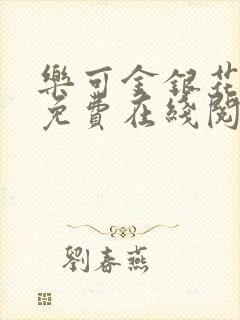 樂可金銀花
免費在綫閱
劉春燕